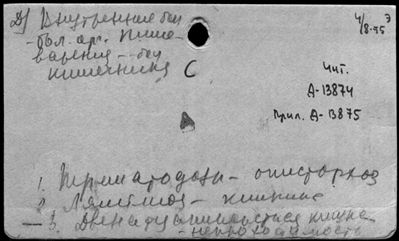 Д) Внутренние бол
-бол. орг. пище-
варения – бол
кишечника С
4/8-95 э
Чит.
А-13874
Прил. А-13875
1. Трематодозы – описторхоз
2. Лямблиоз – кишки
3. Двенадцатиперстная кишка
– непроходимость